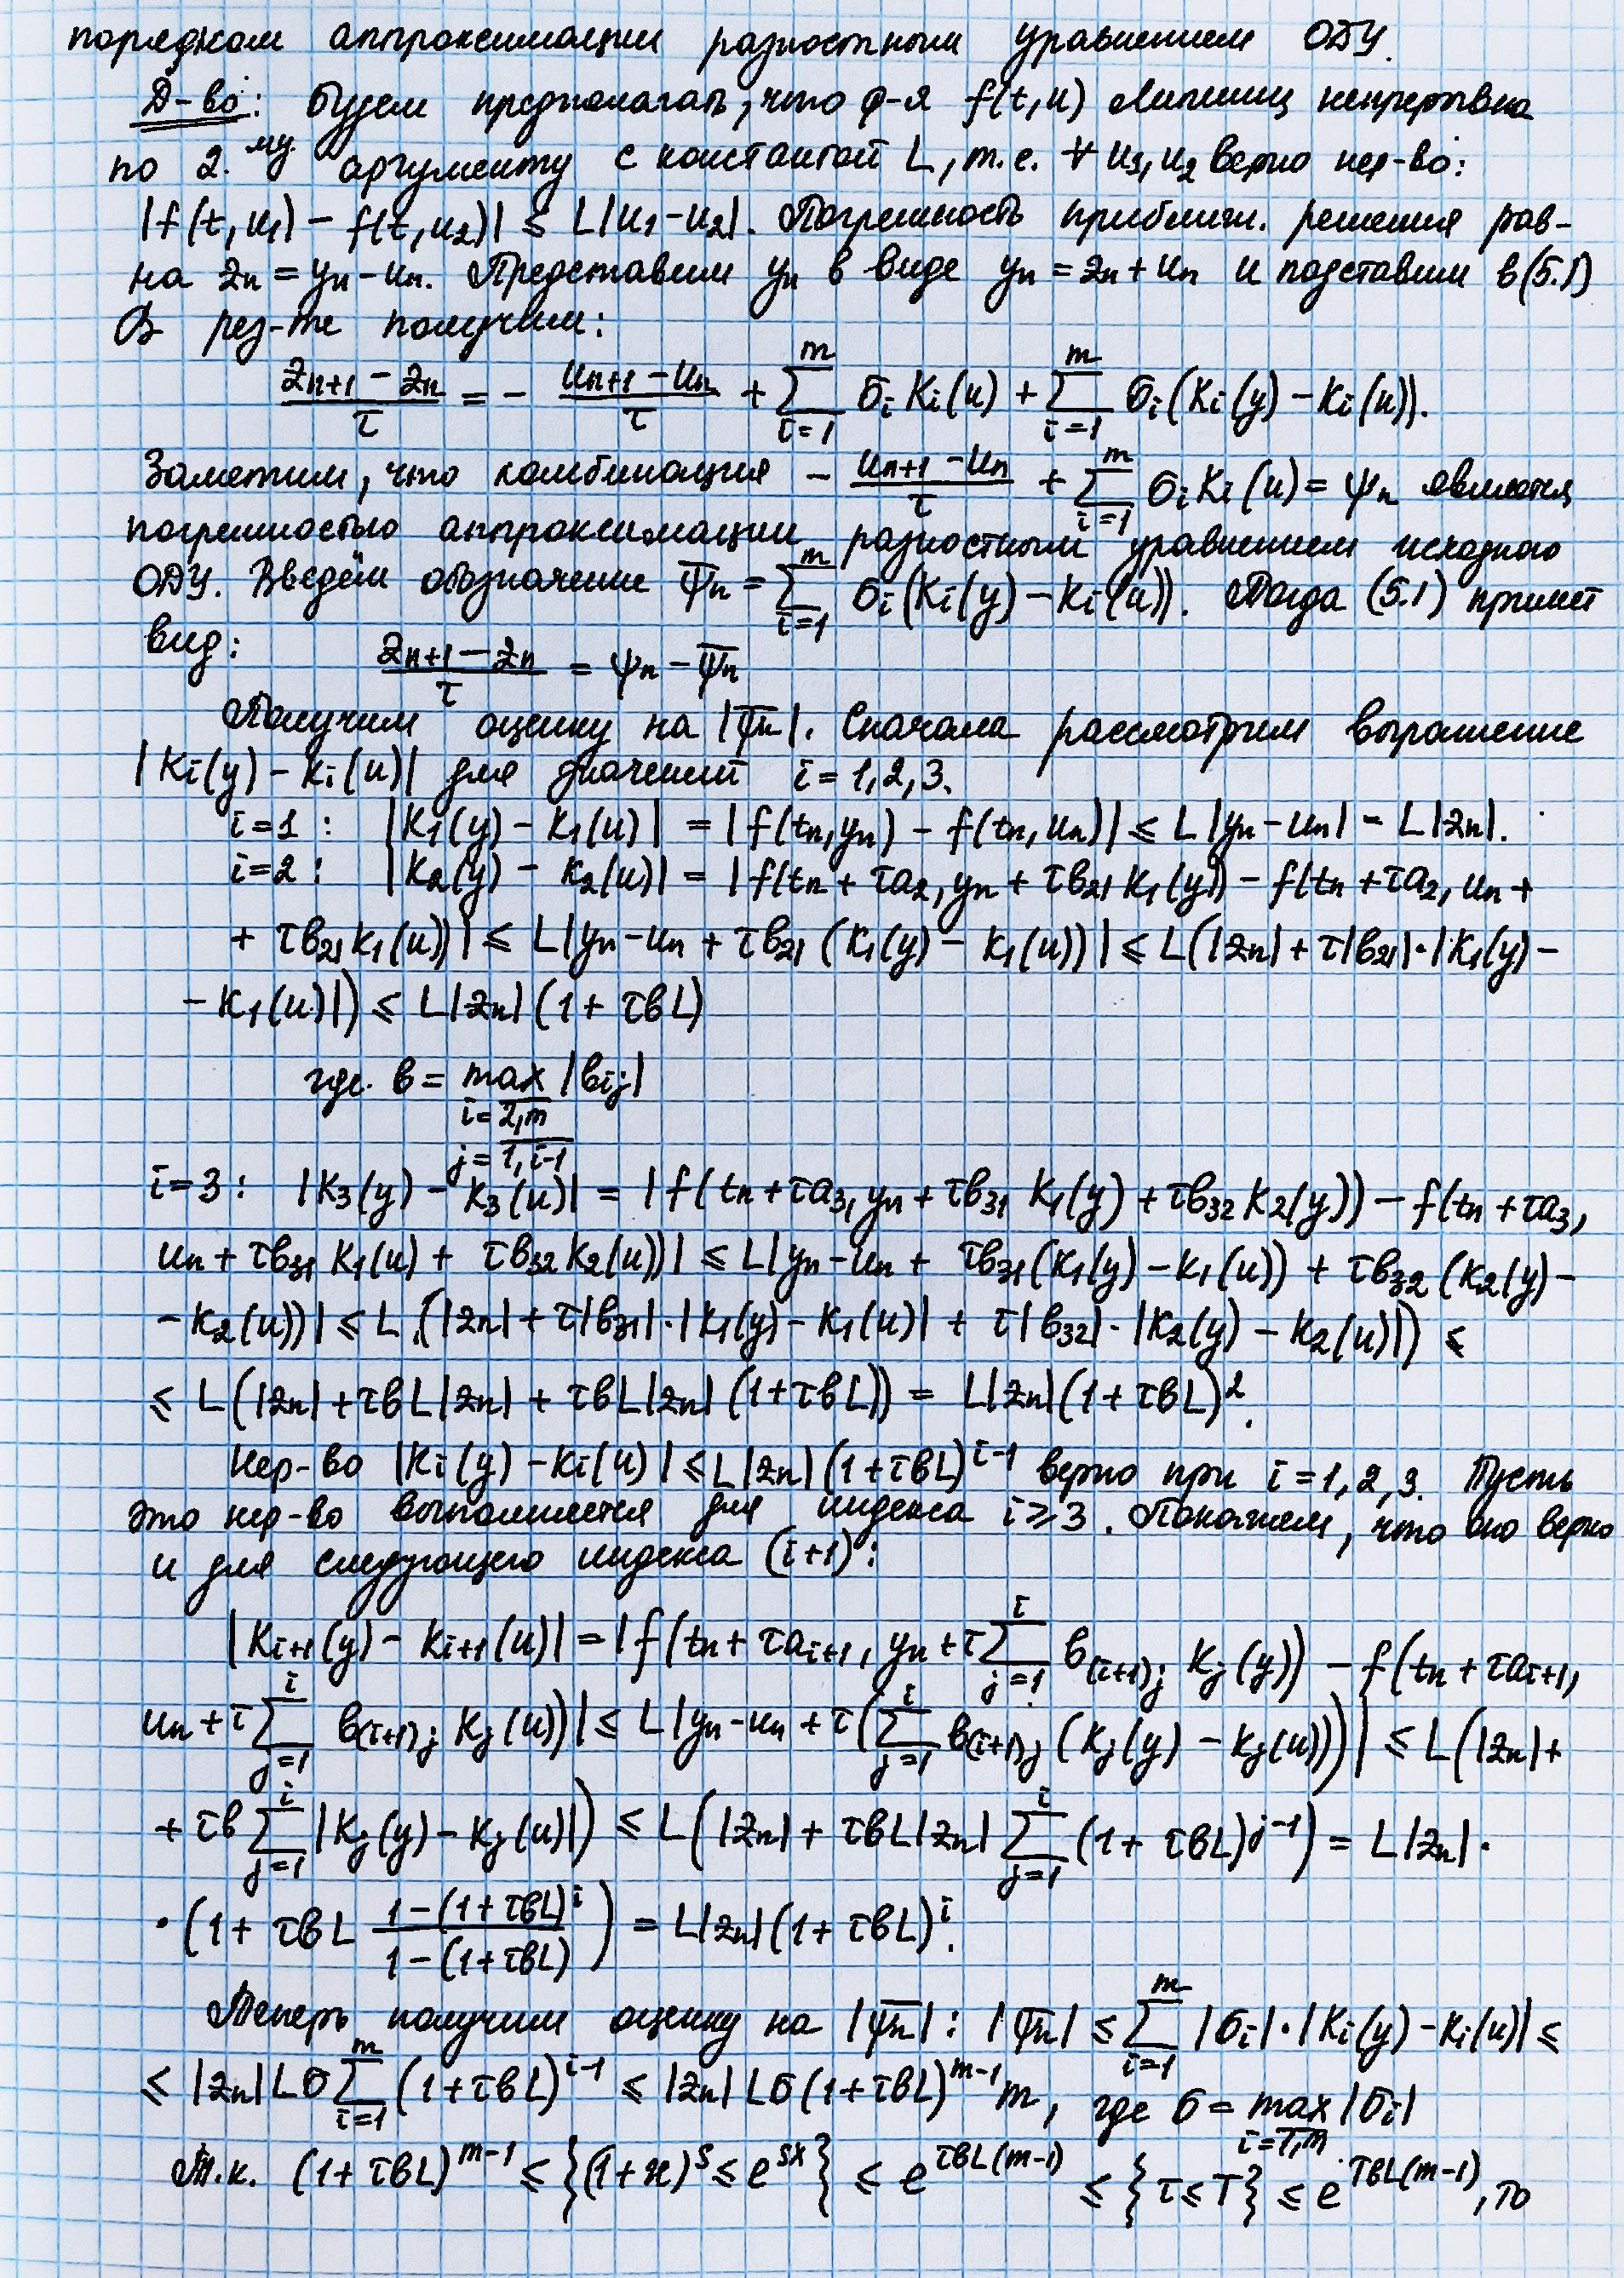 порядком аппроксимации разностным уравнением ОДУ.
Д-во: Будем предполагать, что ф-я f(t,u) Липшиц непрерывна
по 2.му аргументу с константой L, т.е. ∀ u₁,u₂ верно нер-во:
|f(t,u₁) - f(t,u₂)| ≤ L|u₁-u₂|. Погрешность приближ. решения рав-
на zₙ = yₙ - uₙ. Представим yₙ в виде yₙ = zₙ + uₙ и подставим в (5.1)
В рез-те получим:
(zₙ₊₁ - zₙ)/τ = - (uₙ₊₁ - uₙ)/τ + ∑_{i=1}^{m} σᵢ Kᵢ(u) + ∑_{i=1}^{m} σᵢ(Kᵢ(y) - Kᵢ(u)).
Заметим, что комбинация - (uₙ₊₁ - uₙ)/τ + ∑_{i=1}^{m} σᵢKᵢ(u) = ψₙ является
погрешностью аппроксимации разностным уравнением исходного
ОДУ. Введём обозначение ψ̅ₙ = ∑_{i=1}^{m} σᵢ(Kᵢ(y) - Kᵢ(u)). Тогда (5.1) примет
вид: (zₙ₊₁ - zₙ)/τ = ψₙ - ψ̅ₙ
Получим оценку на |ψ̅ₙ|. Сначала рассмотрим выражение
|Kᵢ(y) - Kᵢ(u)| для значений i = 1,2,3.
i=1 : |K₁(y) - K₁(u)| = |f(tₙ,yₙ) - f(tₙ,uₙ)| ≤ L|yₙ-uₙ| = L|zₙ|.
i=2 : |K₂(y) - K₂(u)| = |f(tₙ + τa₂, yₙ + τb₂₁K₁(y)) - f(tₙ + τa₂, uₙ +
+ τb₂₁K₁(u))| ≤ L|yₙ-uₙ + τb₂₁(K₁(y) - K₁(u))| ≤ L(|zₙ| + τ|b₂₁|·|K₁(y) -
- K₁(u)|) ≤ L|zₙ|(1 + τbL)
где b = max |bᵢⱼ|
i=2̅,̅m̅
j=1̅,̅i̅-̅1̅
i=3 : |K₃(y) - K₃(u)| = |f(tₙ + τa₃, yₙ + τb₃₁K₁(y) + τb₃₂K₂(y)) - f(tₙ + τa₃,
uₙ + τb₃₁K₁(u) + τb₃₂K₂(u))| ≤ L|yₙ-uₙ + τb₃₁(K₁(y) - K₁(u)) + τb₃₂(K₂(y) -
- K₂(u))| ≤ L(|zₙ| + τ|b₃₁|·|K₁(y) - K₁(u)| + τ|b₃₂|·|K₂(y) - K₂(u)|) ≤
≤ L(|zₙ| + τbL|zₙ| + τbL|zₙ|(1+τbL)) = L|zₙ|(1+τbL)².
Нер-во |Kᵢ(y) - Kᵢ(u)| ≤ L|zₙ|(1+τbL)^{i-1} верно при i = 1,2,3. Пусть
это нер-во выполняется для индекса i ≥ 3. Покажем, что оно верно
и для следующего индекса (i+1):
|Kᵢ₊₁(y) - Kᵢ₊₁(u)| = |f(tₙ + τaᵢ₊₁, yₙ + τ∑_{j=1}^{i} b_{(i+1)j} Kⱼ(y)) - f(tₙ + τaᵢ₊₁,
uₙ + τ∑_{j=1}^{i} b_{(i+1)j} Kⱼ(u))| ≤ L|yₙ-uₙ + τ(∑_{j=1}^{i} b_{(i+1)j}(Kⱼ(y) - Kⱼ(u)))| ≤ L(|zₙ| +
+ τb∑_{j=1}^{i} |Kⱼ(y) - Kⱼ(u)|) ≤ L(|zₙ| + τbL|zₙ| ∑_{j=1}^{i} (1 + τbL)^{j-1}) = L|zₙ|·
·(1 + τbL (1-(1+τbL)^i)/(1-(1+τbL))) = L|zₙ|(1+τbL)^i.
Теперь получим оценку на |ψ̅ₙ| : |ψ̅ₙ| ≤ ∑_{i=1}^{m} |σᵢ|·|Kᵢ(y) - Kᵢ(u)| ≤
≤ |zₙ|Lσ∑_{i=1}^{m} (1+τbL)^{i-1} ≤ |zₙ|Lσ(1+τbL)^{m-1}m, где σ = max_{i=1̅,̅m̅} |σᵢ|
Т.к. (1+τbL)^{m-1} ≤ {(1+x)^s ≤ e^{sx}} ≤ e^{τbL(m-1)} ≤ {τ ≤ T} ≤ e^{TbL(m-1)}, то